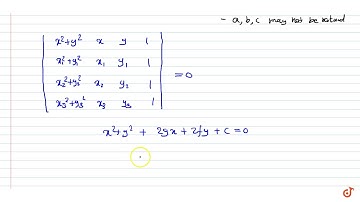 - a, b, c may not be
x²+y² x y 1
x₁²+y₁² x₁ y₁ 1
x₂²+y₂² x₂ y₂ 1 = 0
x₃²+y₃² x₃ y₃ 1
x²+y² + 2gx + 2fy + c = 0